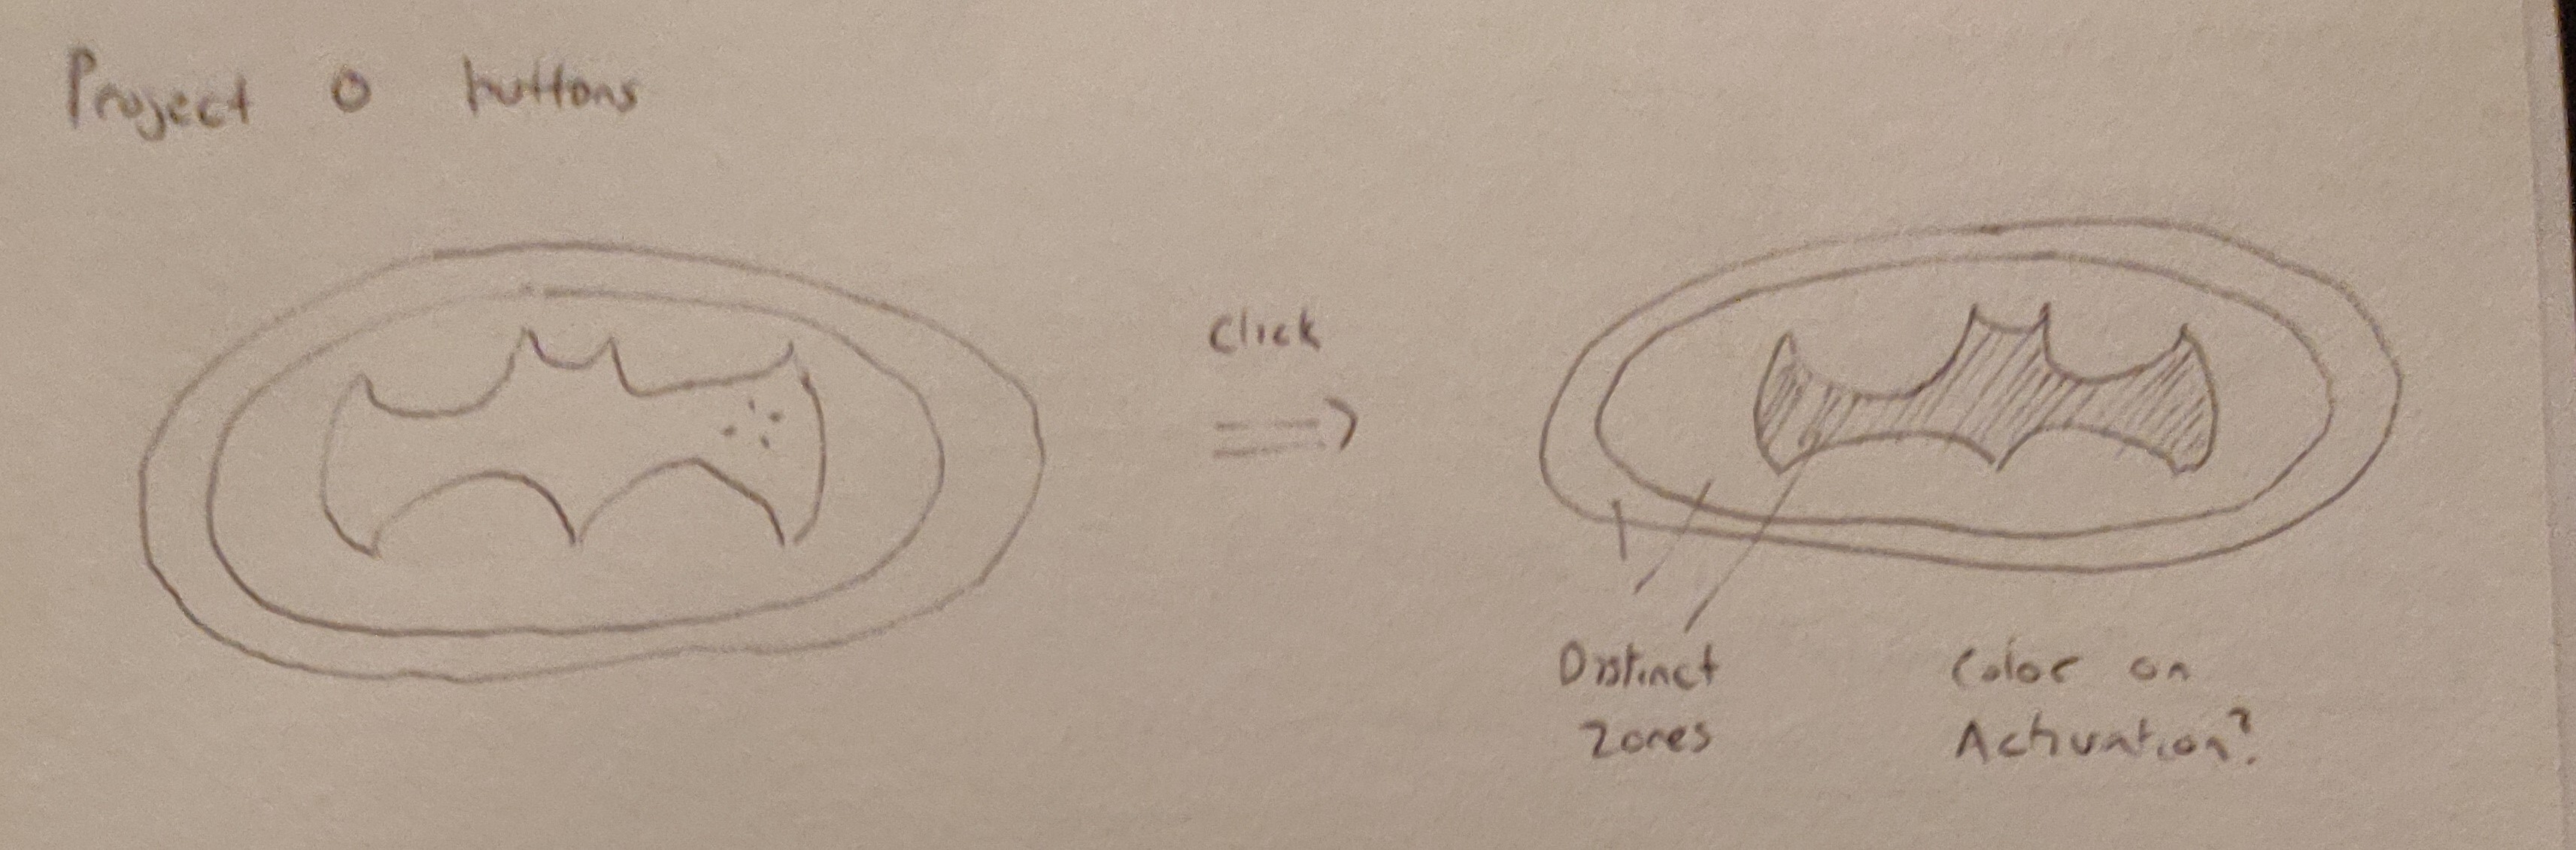 Project O buttons
Click
Distinct
Zones
Color on
Activation?